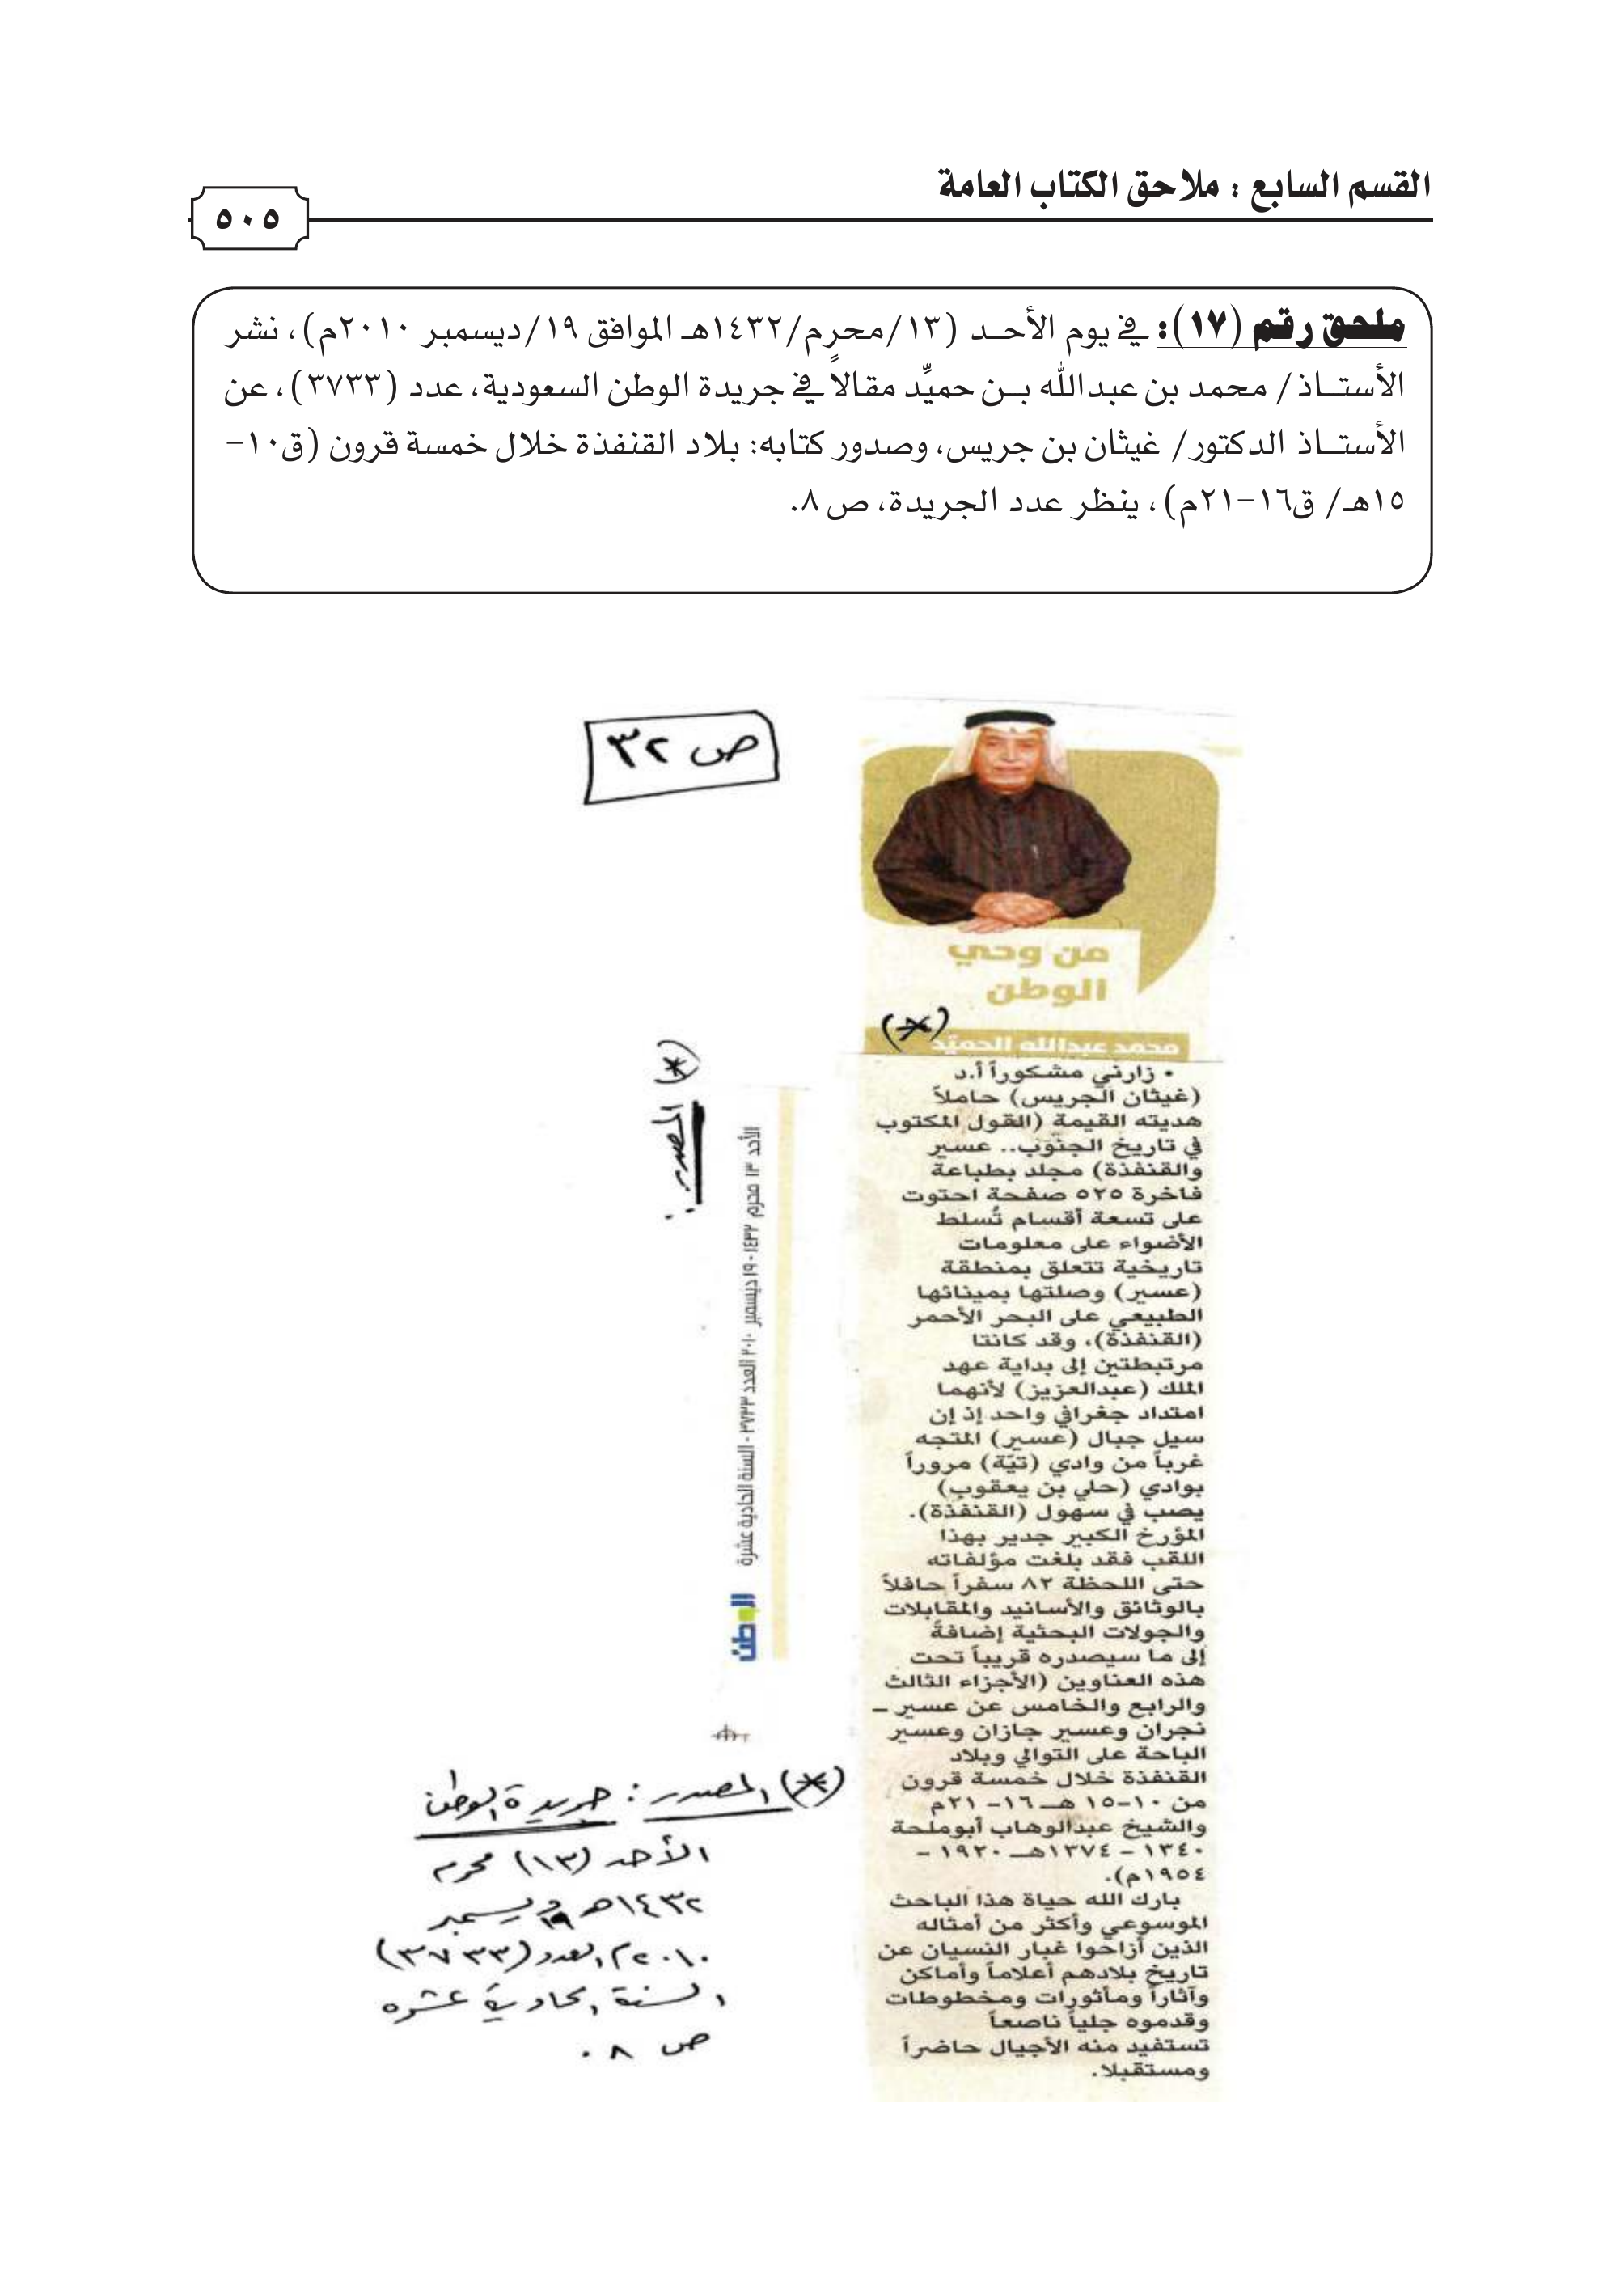 القسم السابع : ملاحق الكتاب العامة
٥٠٥
ملحق رقم (١٧): في يوم الأحد (١٣/محرم/١٤٣٢هـ الموافق ١٩/ديسمبر ٢٠١٠م)، نشر
الأستاذ/ محمد بن عبدالله بن حميِّد مقالاً في جريدة الوطن السعودية، عدد (٣٧٣٣)، عن
الأستاذ الدكتور/ غيثان بن جريس، وصدور كتابه: بلاد القنفذة خلال خمسة قرون (ق١٠-
١٥هـ/ ق١٦-٢١م)، ينظر عدد الجريدة، ص٨.
ص ٣٢
من وحي
الوطن
(*)
محمد عبدالله الحميّد
• زارني مشكوراً أ.د
(غيثان الجريس) حاملاً
هديته القيمة (القول المكتوب
في تاريخ الجنوب.. عسير
والقنفذة) مجلد بطباعة
فاخرة ٥٢٥ صفحة احتوت
على تسعة أقسام تُسلط
الأضواء على معلومات
تاريخية تتعلق بمنطقة
(عسير) وصلتها بمينائها
الطبيعي على البحر الأحمر
(القنفذة)، وقد كانتا
مرتبطتين إلى بداية عهد
الملك (عبدالعزيز) لأنهما
امتداد جغرافي واحد إذ إن
سيل جبال (عسير) المتجه
غرباً من وادي (تيّة) مروراً
بوادي (حلي بن يعقوب)
يصب في سهول (القنفذة).
المؤرخ الكبير جدير بهذا
اللقب فقد بلغت مؤلفاته
حتى اللحظة ٨٢ سفراً حافلاً
بالوثائق والأسانيد والمقابلات
والجولات البحثية إضافةً
إلى ما سيصدره قريباً تحت
هذه العناوين (الأجزاء الثالث
والرابع والخامس عن عسير –
نجران وعسير جازان وعسير
الباحة على التوالي وبلاد
القنفذة خلال خمسة قرون
من ١٠-١٥ هـ ١٦- ٢١م
والشيخ عبدالوهاب أبوملحة
١٣٤٠ - ١٣٧٤هـ ١٩٢٠ -
١٩٥٤م).
بارك الله حياة هذا الباحث
الموسوعي وأكثر من أمثاله
الذين أزاحوا غبار النسيان عن
تاريخ بلادهم أعلاماً وأماكن
وآثاراً ومأثورات ومخطوطات
وقدموه جلياً ناصعاً
تستفيد منه الأجيال حاضراً
ومستقبلا.
(*) المصدر:
الأحد ١٣ محرم ١٤٣٢ - ١٩ ديسمبر ٢٠١٠ العدد ٣٧٣٣ - السنة الحادية عشرة
الوطن
(*) المصدر : جريدة الوطن
الأحد (١٣) محرم
١٤٣٢هـ ١٩ ديسمبر
٢٠١٠م العدد (٣٧٣٣)
السنة الحادية عشره
ص ٨ .